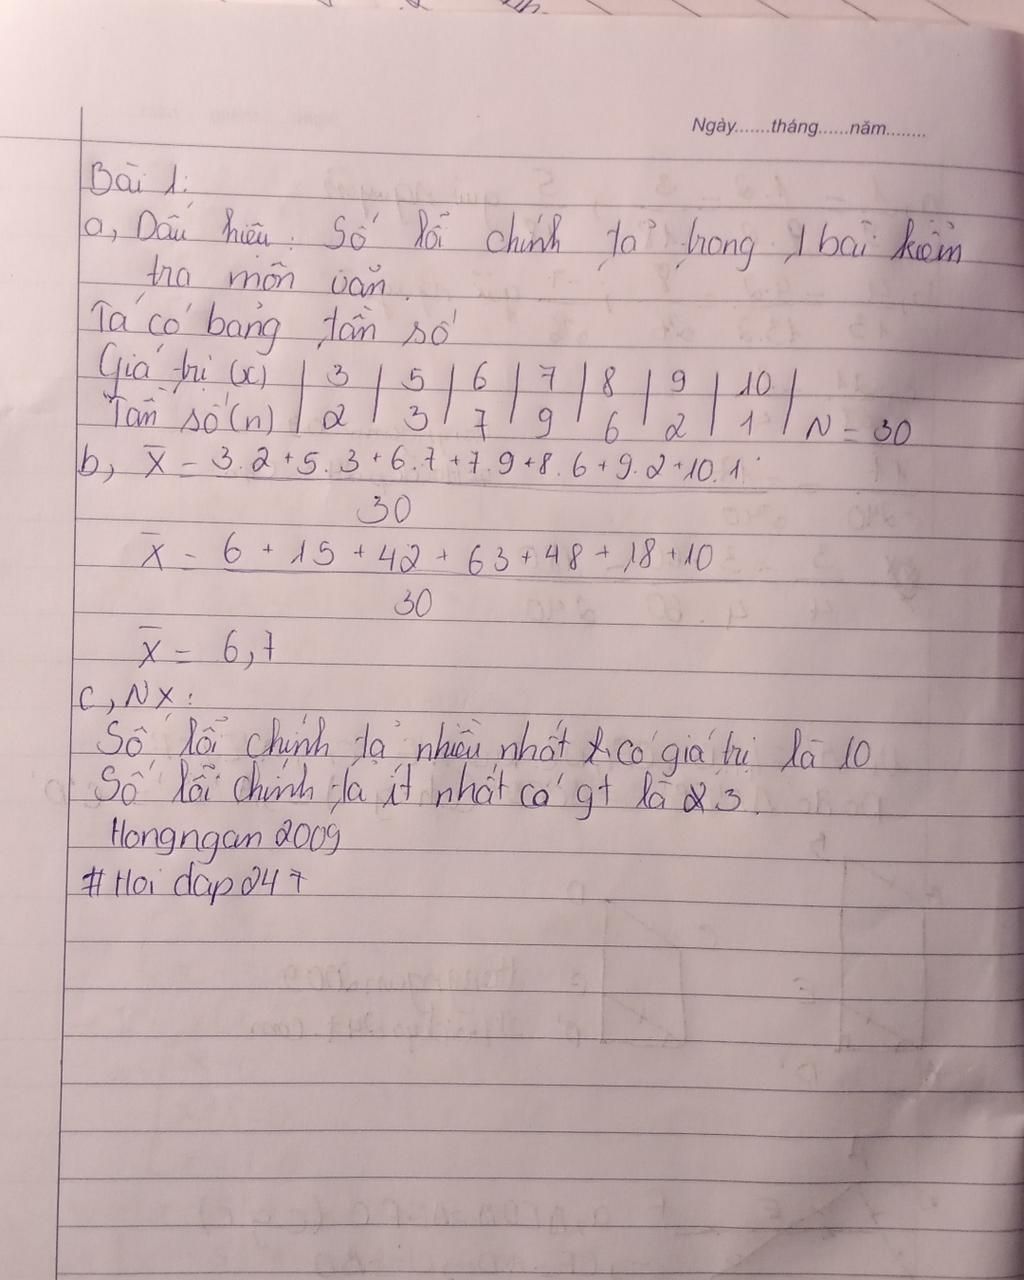 Ngày.......tháng......năm........
Bài 1:
a, Dấu hiệu: Số lỗi chính tả trong 1 bài kiểm
tra môn văn.
Ta có bảng tần số
Giá trị (x) | 3 | 5 | 6 | 7 | 8 | 9 | 10 |
Tần số (n) | 2 | 3 | 7 | 9 | 6 | 2 | 1 | N = 30
b, X̄ = 3.2+5.3+6.7+7.9+8.6+9.2+10.1
30
X̄ = 6 + 15 + 42 + 63 + 48 + 18 + 10
30
X̄ = 6,7
c, Nx:
Số lỗi chính tả nhiều nhất có giá trị là 10
Số lỗi chính tả ít nhất có gt là 3.
Hongngan 2009
# Hoi dap 247